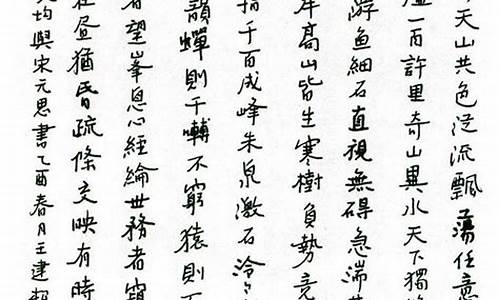 天山共色從流飄蕩任意
廬一百許里奇山異水天下獨
游魚細石直視無碍急湍
岸高山皆生寒樹負勢竞
指千百成峰朱泉激石泠
韻蟬則千囀不窮猿則
者望峯息心經綸世務者窺
在昼猶昏疏條交映有時
均與宋元思書乙酉春月王建